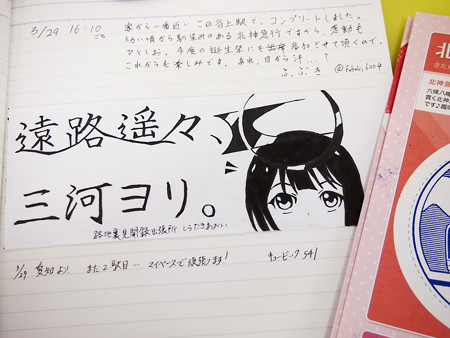 3/29 16:10ごろ
家から一番近い この谷上駅で、コンプリートしました。
幼い頃から馴染みのある北神急行ですから、感動も
ひとしお。今度の誕生祭にも出席参加させて頂くので、
これからも楽しみです。あれ、目から汗…?
ふぶき
遠路遥々、
三河ヨリ。
路地裏見聞録出張所 しらたきあおい
3/29 愛知より まだ2駅目… マイペースで頑張ります!
キュービック541
北
北神急行
六條八幡
貫く北神
です♪